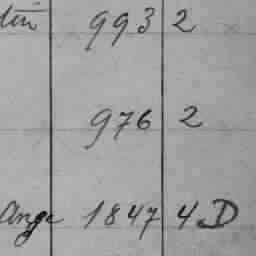 993 2
976 2
Ange 1847 4 D